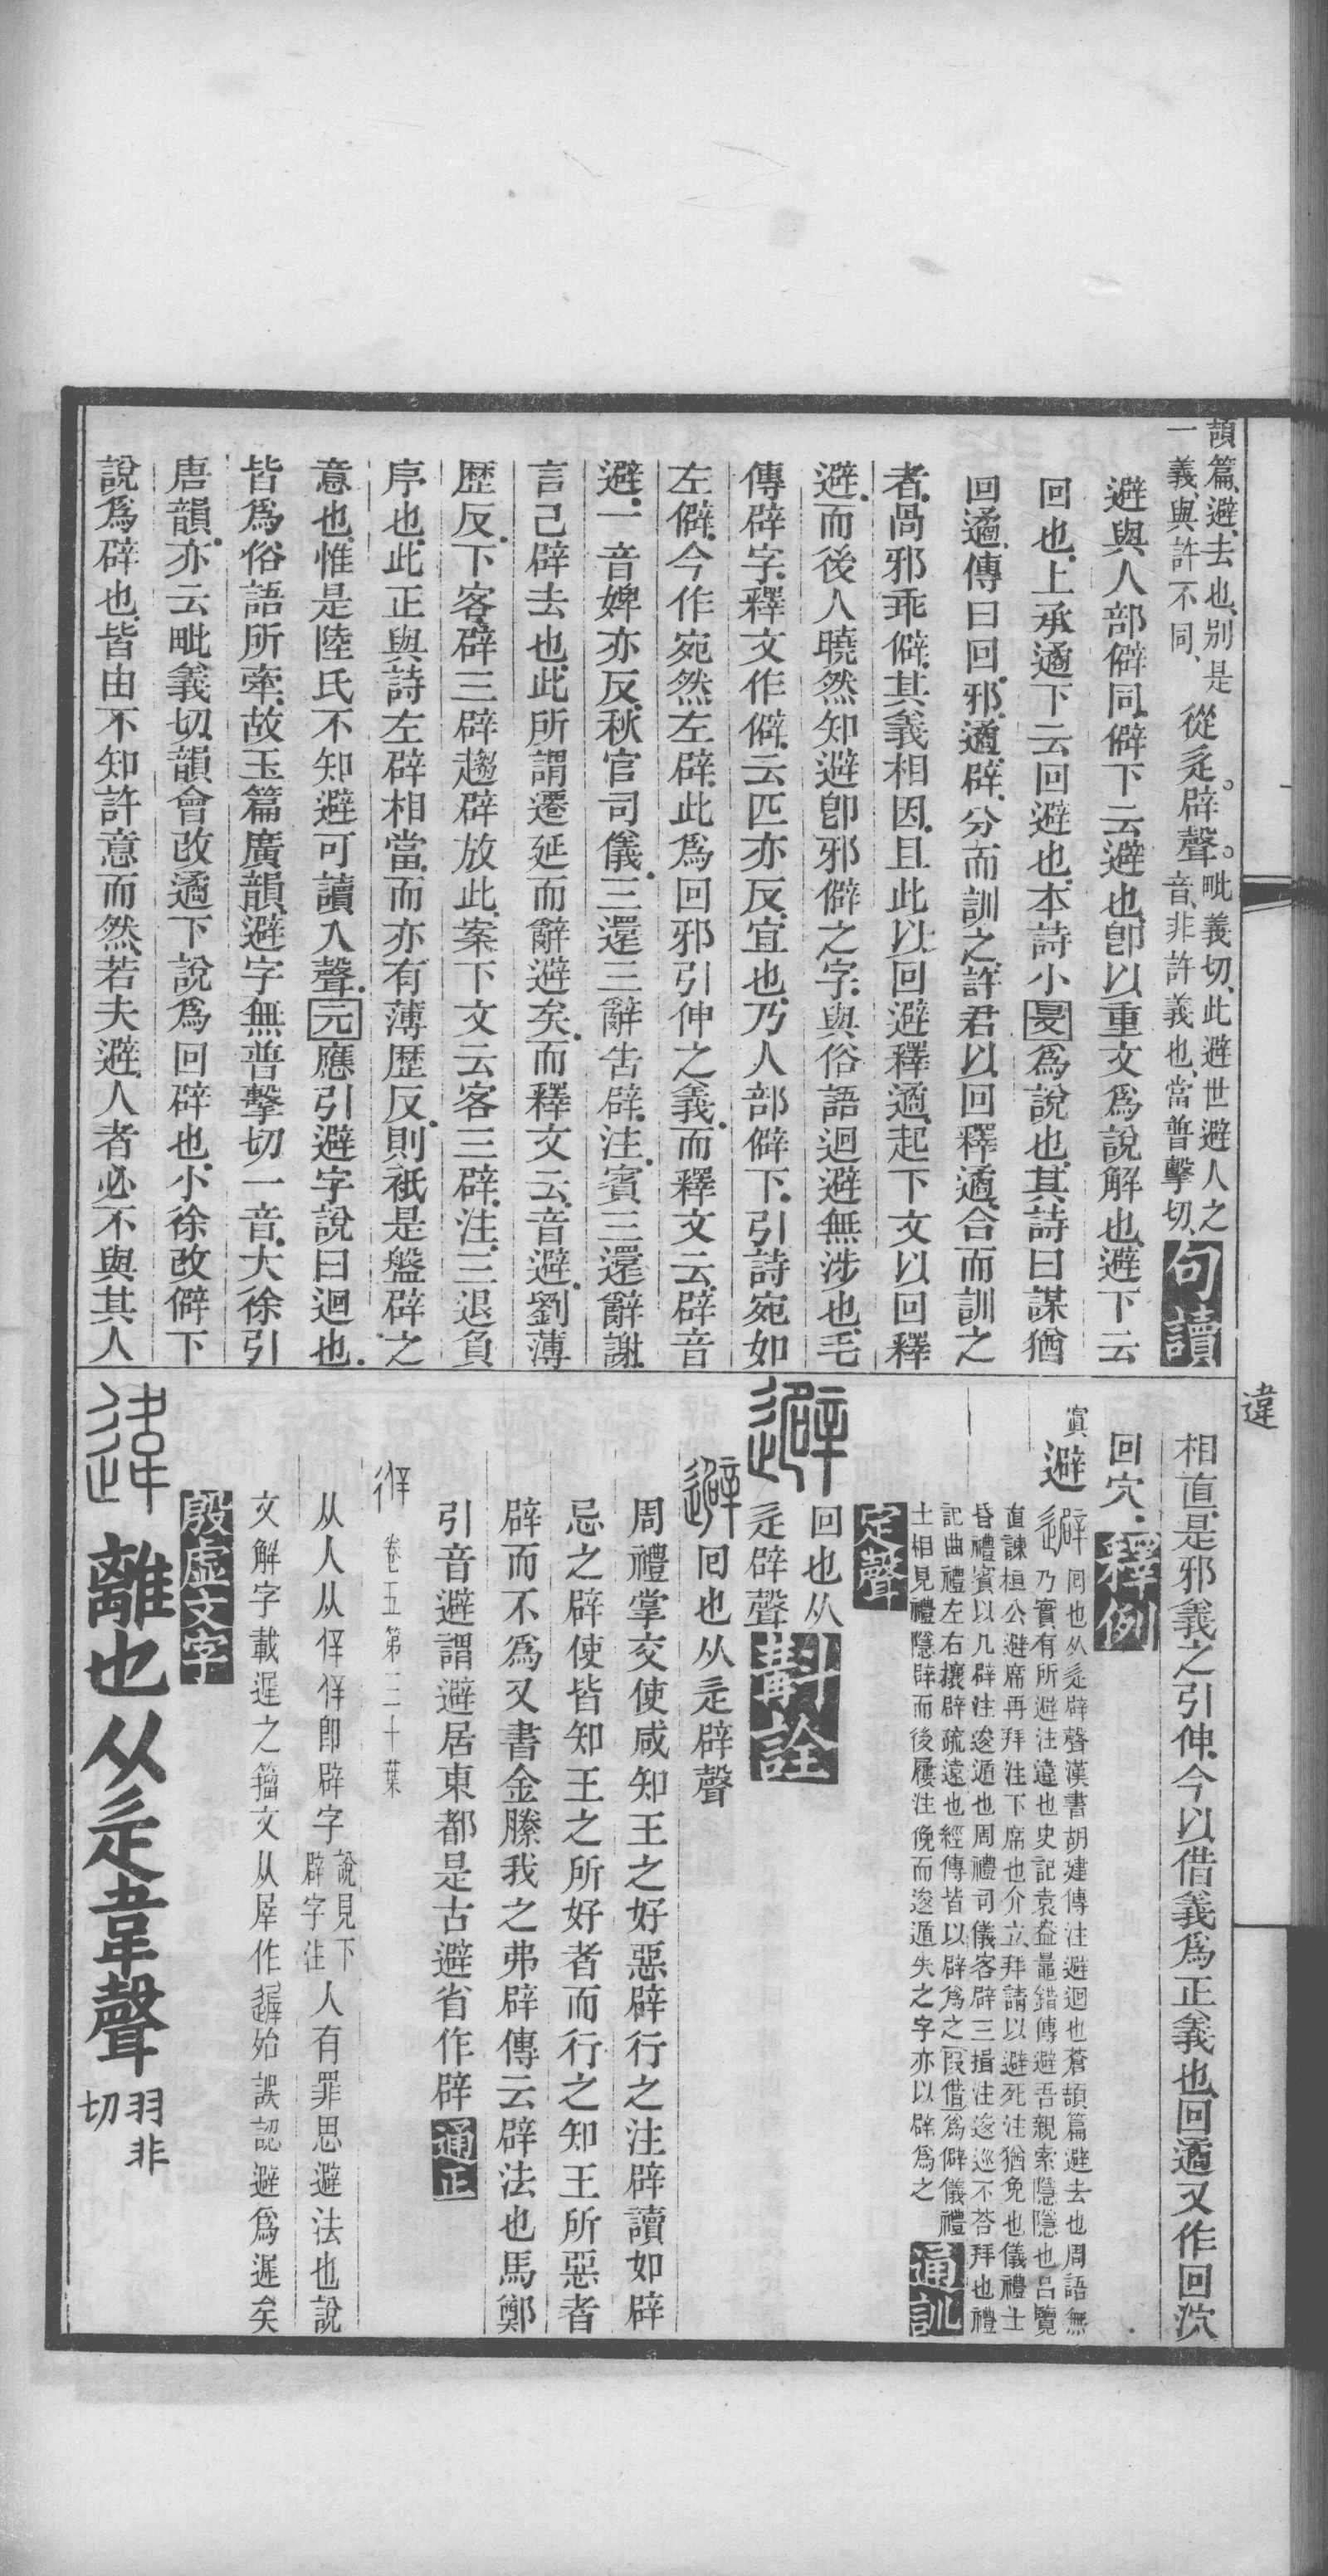 頡篇、避、去也、别是
一義、與許不同、
從辵。辟聲。
毗義切、此避世避人之
音、非許義也、當普擊切、
句讀
避與人部僻同、僻下云避也、卽以重文爲說解也、避下云
回也、上承遹下云回避也、本詩小旻爲說也、其詩曰謀猶
回遹、傳曰回、邪、遹、辟、分而訓之、許君以回釋遹、合而訓之
者、咼邪乖僻、其義相因、且此以回避釋遹、起下文以回釋
避、而後人曉然知避卽邪僻之字、與俗語迴避無涉也、毛
傳辟字、釋文作僻、云匹亦反、宜也、乃人部僻下、引詩宛如
左僻、今作宛然左辟、此爲回邪引伸之義、而釋文云、辟音
避、一音婢亦反、秋官司儀、三還三辭告辟、注、賓三還辭謝、
言己辟去也、此所謂遷延而辭避矣、而釋文云、音避、劉薄
歷反、下客辟三辟趨辟放此、案下文云客三辟、注、三退負
序也、此正與詩左辟相當、而亦有薄歷反、則祇是盤辟之
意也、惟是陸氏不知避可讀入聲、元應引避字說曰迴也、
皆爲俗語所牽、故玉篇廣韻避字無普擊切一音、大徐引
唐韻、亦云毗義切、韻會改遹下說爲回辟也、小徐改僻下
說爲辟也、皆由不知許意而然、若夫避人者必不與其人
違
相直、是邪義之引伸、今以借義爲正義也、回遹又作回泬
回穴、
釋例
避
回也从辵辟聲漢書胡建傳注避迴也蒼頡篇避去也周語無
乃實有所避注違也史記袁盎鼂錯傳避吾親索隱隱也呂覽
直諫桓公避席再拜注下席也介立拜請以避死注猶免也儀禮士
昏禮賓以几辟注逡遁也周禮司儀客辟三揖注逡巡不荅拜也禮
記曲禮左右攘辟疏遠也經傳皆以辟爲之叚借爲僻儀禮
士相見禮隱辟而後屨注俛而逡遁失之字亦以辟爲之
通訓
定聲
回也从
辵辟聲
斠詮
回也从辵辟聲
周禮掌交使咸知王之好惡辟行之注辟讀如辟
忌之辟使皆知王之所好者而行之知王所惡者
辟而不爲又書金縢我之弗辟傳云辟法也馬鄭
引音避謂避居東都是古避省作辟
通正
卷五第三十葉
从人从䇂䇂卽辟字
說見下
辟字注
人有罪思避法也說
文解字載遲之籀文从屖作遟始誤認避爲遲矣
殷虛文字
離也从辵韋聲
羽非
切